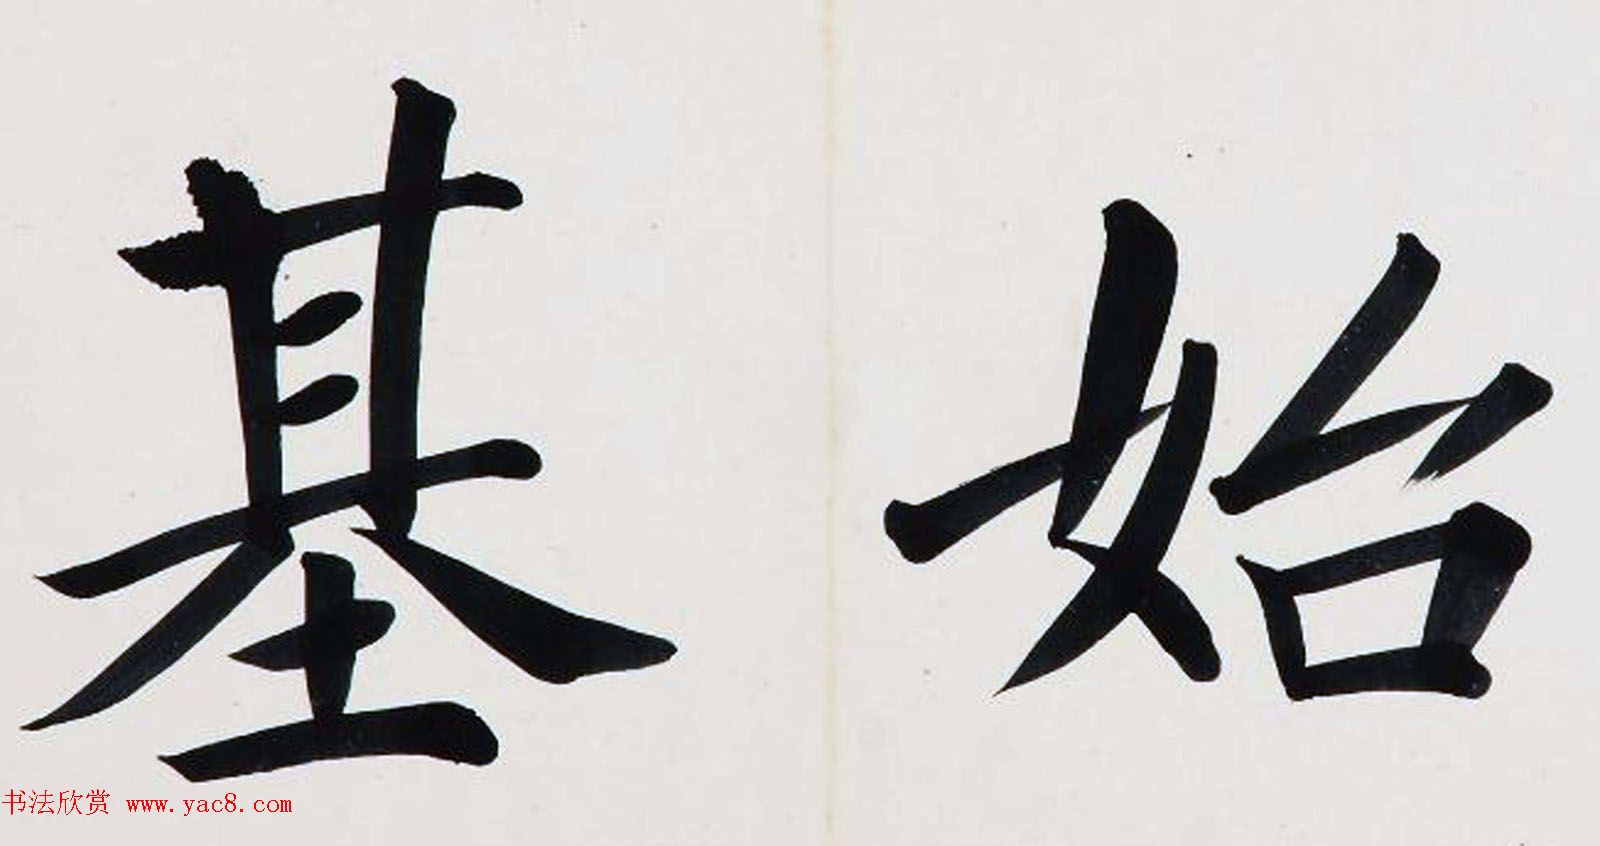 基始
书法欣赏 www.yac8.com